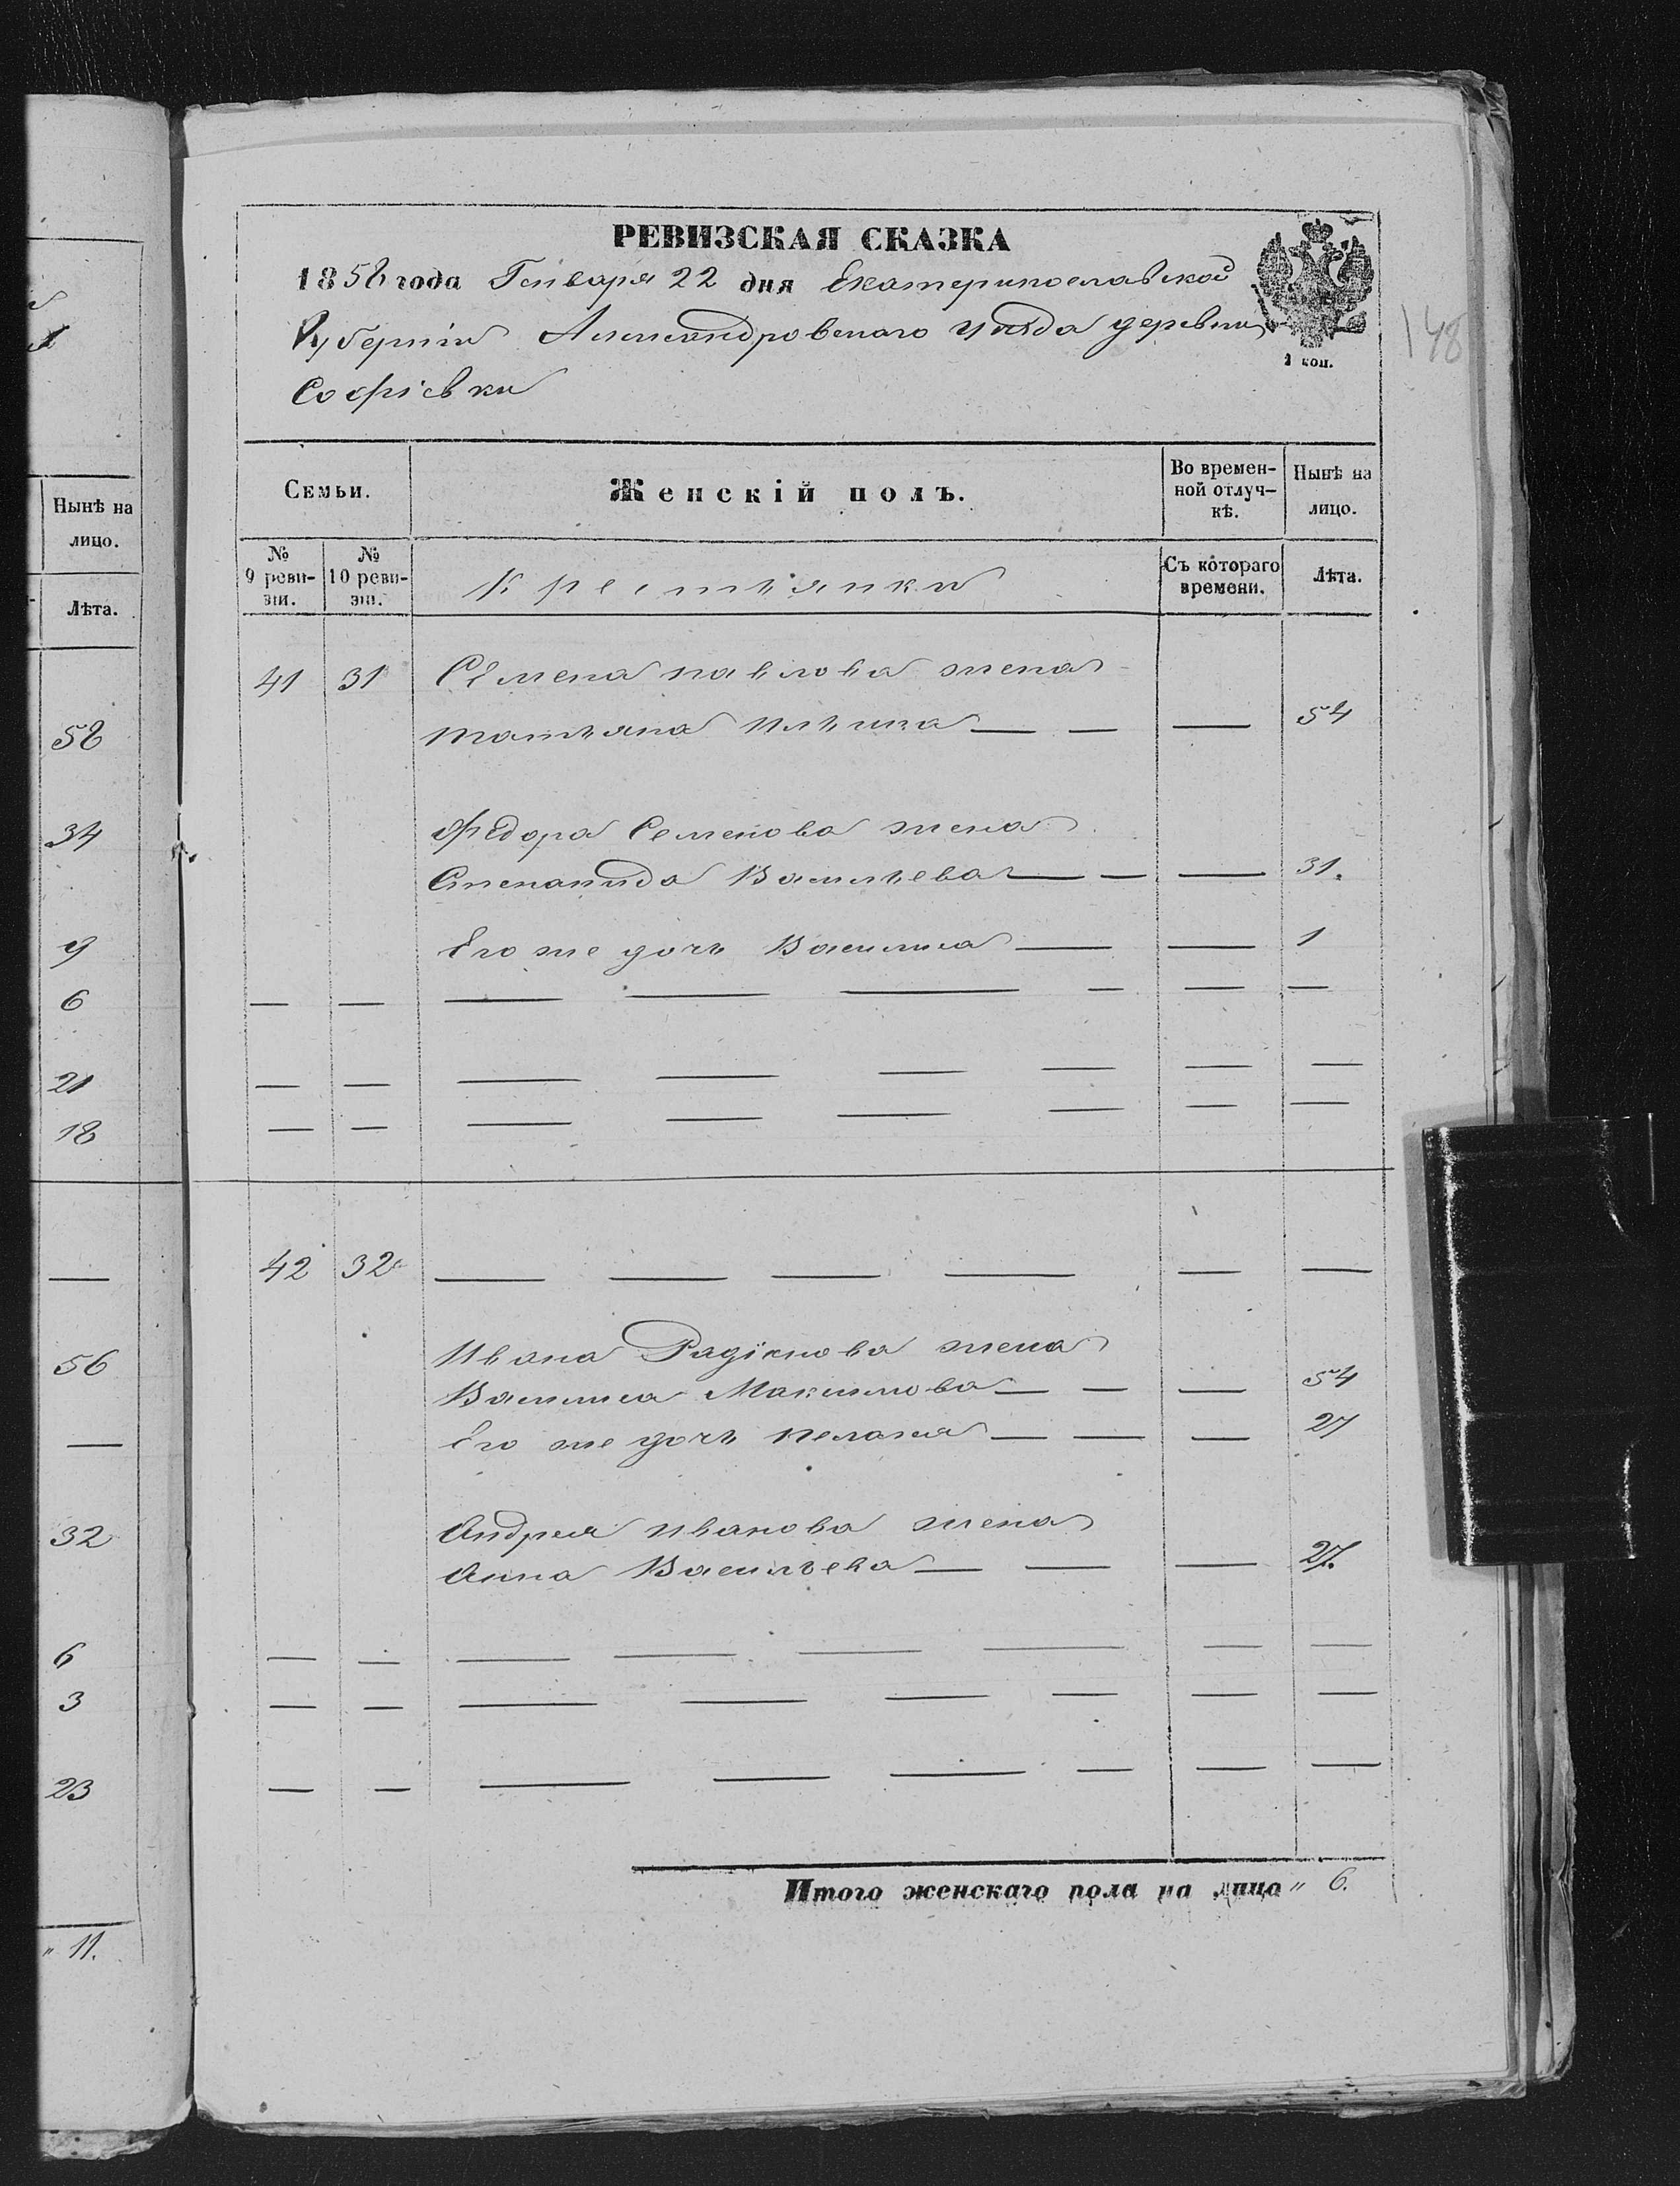 Нынѣ на
лицо.
Лѣта.
58
34
9
6
21
18
—
56
—
32
6
3
23
" 11.
РЕВИЗСКАЯ СКАЗКА
1858 года Генваря 22 дня Екатеринославской
Губерніи Александровскаго уѣзда деревни
Софіевки
1 коп.
148
Семьи.
Женскій полъ.
Во времен-
ной отлуч-
кѣ.
Нынѣ на
лицо.
№
9 реви-
зіи.
№
10 реви-
зіи.
Крестьянки
Съ котораго
времени.
Лѣта.
41 31 Семена павлова жена
татьяна Ильина — — — 54
Федора Семенова жена
Степанида Васильева — — — 31.
Его же дочь Василиса — — 1
— — — — — — — —
— — — — — — — —
— — — — — — — —
42 32 — — — — — —
Ивана Радіонова жена
Василиса Максимова — — — 54
Его же дочь пелагия — — — 27
Андрея иванова жена
Анна Васильева — — — 27.
— — — — — — — —
— — — — — — — —
— — — — — — — —
Итого женскаго пола на лицо " 6.